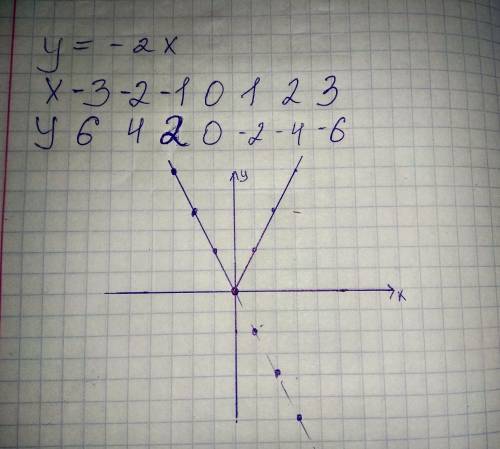 y = -2x
x -3 -2 -1 0 1 2 3
y 6 4 2 0 -2 -4 -6
y
x